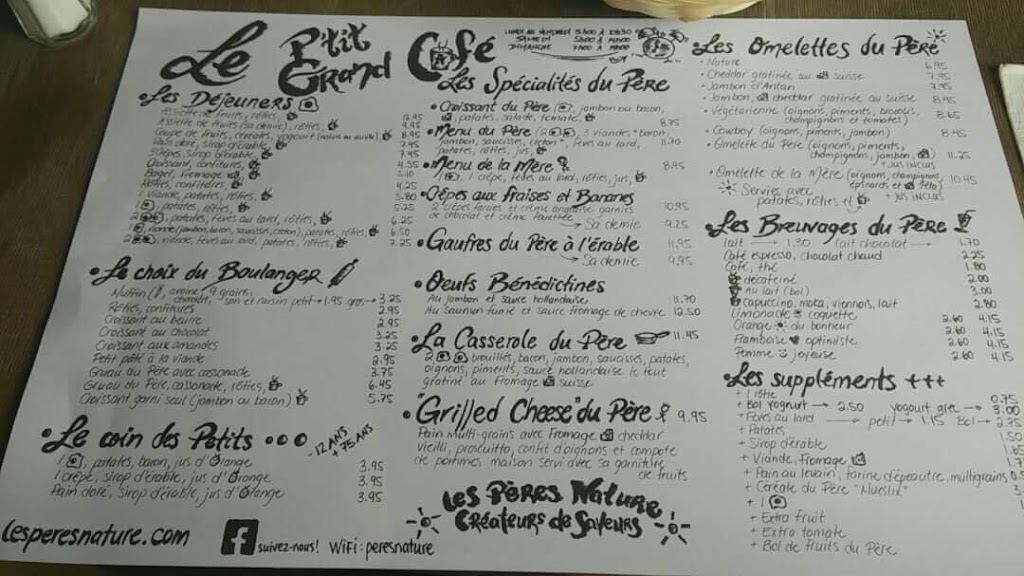 Le P'tit Grand Café
LUNDI AU VENDREDI
SAMEDI
DIMANCHE
Les Déjeuners
Assiette de fruits, rôties, 12.95
Assiette de fruits (la demie), rôties, 9.95
Coupe de fruits, céréales, yogourt 8.95
Pain doré, sirop d'érable 7.45
3 crêpes, sirop d'érable 7.45
Croissant, confitures 4.55
Bagel, fromage
Rôties, confitures 4.25
Viande, patates, rôties
1, patates, rôties 5.25
2, patates, fèves au lard, rôties, 6.25
1, viande (jambon, bacon, saucisses, creton), patates, rôties, 6.50
2, viande, fèves au lard, patates, rôties, 7.25
Le choix du Boulanger
Muffin (avoine, 9 grains,
chocolat, son et raisin petit → 1.95 gros → 3.25
Rôties, confitures 2.95
Croissant au beurre 2.95
Croissant au chocolat 3.25
Croissant aux amandes 3.25
Petit pâté à la viande 2.95
Gruau du Père avec cassonade 3.75
Gruau du Père, cassonade, rôties, 6.45
Croissant garni seul (jambon ou bacon) 5.75
Le coin des Petits
-12 ANS
+ 75 ANS
1, patates, bacon, jus d'orange 3.95
1 crêpe, sirop d'érable, jus d'orange 3.95
Pain doré, sirop d'érable, jus d'orange 3.95
lesperesnature.com
f suivez-nous! WiFi: peresnature
Les Spécialités du Père
• Croissant du Père, jambon ou bacon,
patates, salade, tomate 8.75
• Menu du Père (2, 3 viandes "bacon,
jambon, saucisses, creton", fèves au lard, 11.70
patates, rôties, jus,
• Menu de la Mère 8.95
(1, 1 crêpe, fèves au lard, rôties, jus,
• Crêpes aux fraises et Bananes
2 crêpes farcies et crème anglaise garnies 10.95
de chocolat et crème fouettée
La demie 9.25
• Gaufres du Père à l'érable 11.95
La demie 9.95
• Oeufs Bénédictines
Au jambon et sauce hollandaise 11.70
Au saumon fumé et sauce fromage de chèvre 12.50
• La Casserole du Père 11.45
2 brouillés, bacon, jambon, saucisses, patates,
oignons, piments, sauce hollandaise le tout
gratiné au fromage suisse
• "Grilled Cheese" du Père 9.95
Pain multi-grains avec fromage cheddar
vieilli, proscuitto, confit d'oignons et compote
de pommes maison servi avec sa garniture
de fruits
Les Pères Nature
Créateurs de Saveurs
Les Omelettes du Père
• Nature 6.95
• Cheddar gratinée au suisse 7.95
• Jambon d'Antan 7.95
• Jambon, cheddar gratinée au suisse 8.95
• Végétarienne (oignons, piments, brocolis, 8.65
champignons et tomates)
• Cowboy (oignons, piments, jambon) 8.45
• Omelette du Père (oignons, piments,
champignons, jambon, 11.25
+ JUS INCLUS
• Omelette de la Mère (oignons, champignons,
épinards et 10.45
+ JUS INCLUS
Servies avec
patates, rôties et
Les Breuvages du Père
Lait → 1.30 Lait chocolat → 1.70
Café espresso, chocolat chaud 2.25
Café, thé 1.80
décaféiné 2.00
Au lait (bol) 3.00
Capuccino, moka, viennois, lait 2.80
Limonade coquette 2.60 4.15
Orange du bonheur 2.60 4.15
Framboise optimiste 2.60 4.15
Pomme joyeuse 2.60 4.15
Les suppléments +++
+ 1 rôtie 0.75
+ Bol Yogourt → 2.50 yogourt grec → 3.00
+ Fèves au lard → petit → 1.15 Bol → 2.75
+ Patates
+ Sirop d'érable
+ Viande, Fromage
+ Pain au levain, farine d'épeautre, multigrains
+ Céréale du Père "Mueslix"
+ 1
+ Extra fruit
+ Extra tomate
+ Bol de fruits du Père